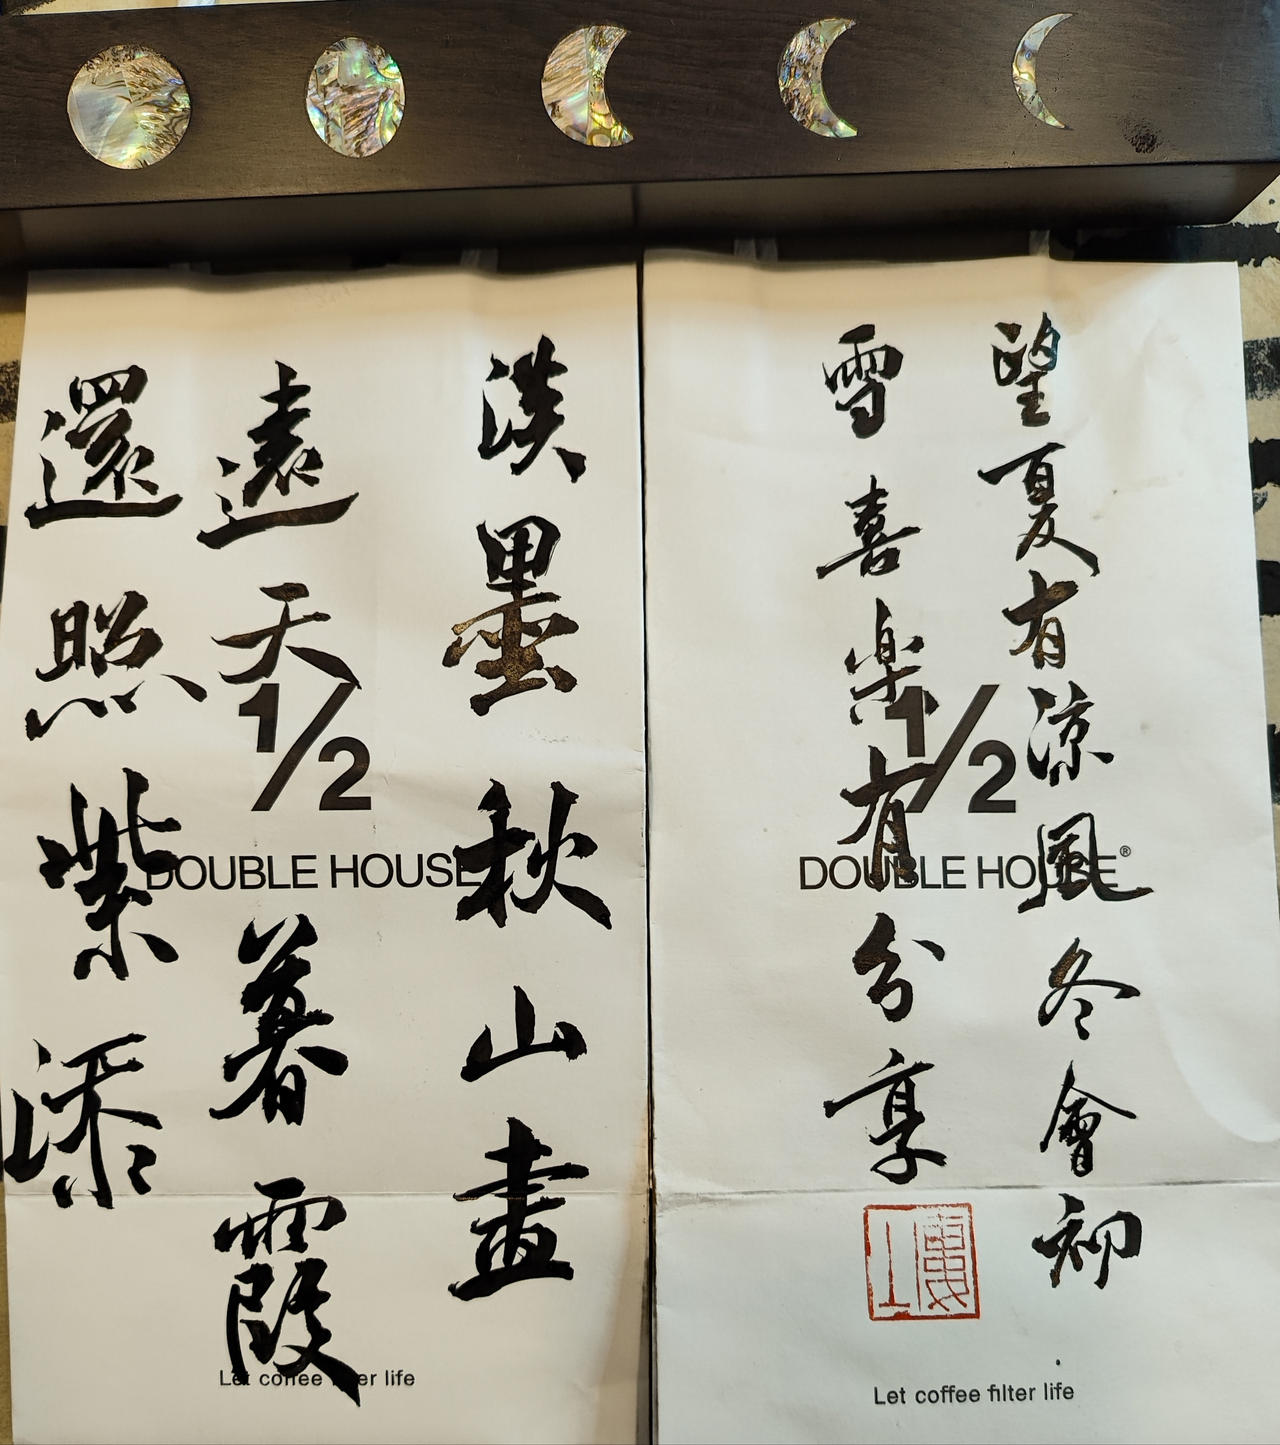 望夏有涼風冬會初
雪喜楽有分享
1/2
DOUBLE HOUSE®
Let coffee filter life
淡墨秋山畫
遠天暮霞
還照紫添
1/2
DOUBLE HOUSE
Let coffee filter life